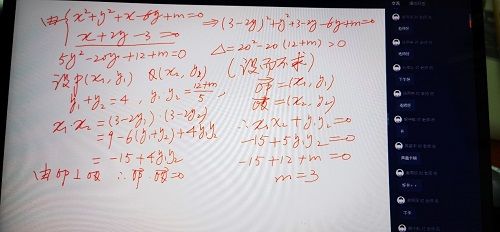 由{x²+y²+x-6y+m=0
x+2y-3=0
⇒(3-2y)²+y²+3-2y-6y+m=0
5y²-20y+12+m=0
Δ=20²-20(12+m)>0
设P(x₁,y₁) Q(x₂,y₂) (设而不求)
y₁+y₂=4, y₁y₂=(12+m)/5,
OP=(x₁,y₁)
OQ=(x₂,y₂)
x₁x₂=(3-2y₁)·(3-2y₂)
=9-6(y₁+y₂)+4y₁y₂
=-15+4y₁y₂
∴x₁x₂+y₁y₂=0
-15+5y₁y₂=0
-15+12+m=0
m=3
由OP⊥OQ ∴OP·OQ=0